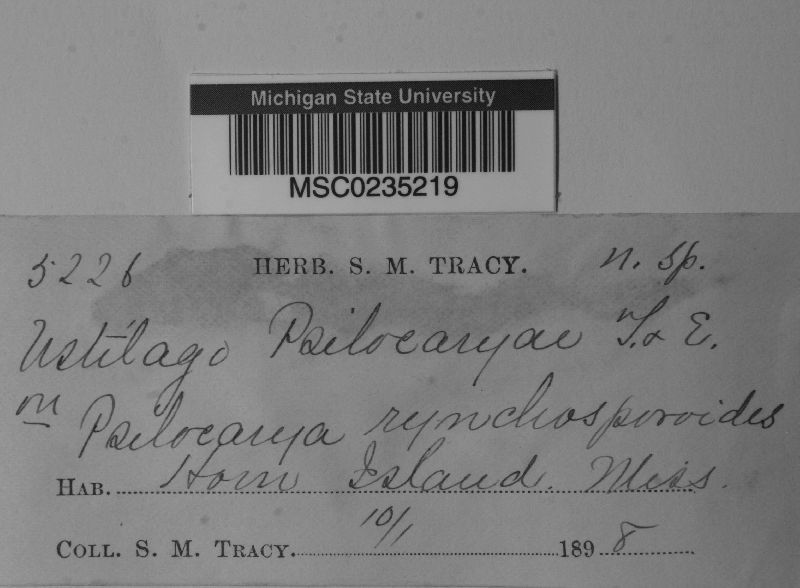 Michigan State University
MSC0235219
5226 HERB. S. M. TRACY. n. sp.
Ustilago Psilocaryae T. & E.
on Psilocarya rynchosporoides
HAB. Horn Island. Miss.
10/1
COLL. S. M. TRACY. 1898